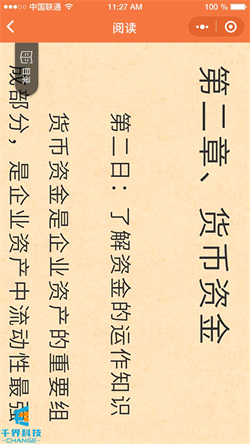 中国联通
11:27 AM
100 %
阅读
目录
第二章、货币资金
第二日：了解资金的运作知识
货币资金是企业资产的重要组
成部分，是企业资产中流动性最强
千界科技
CHANGE